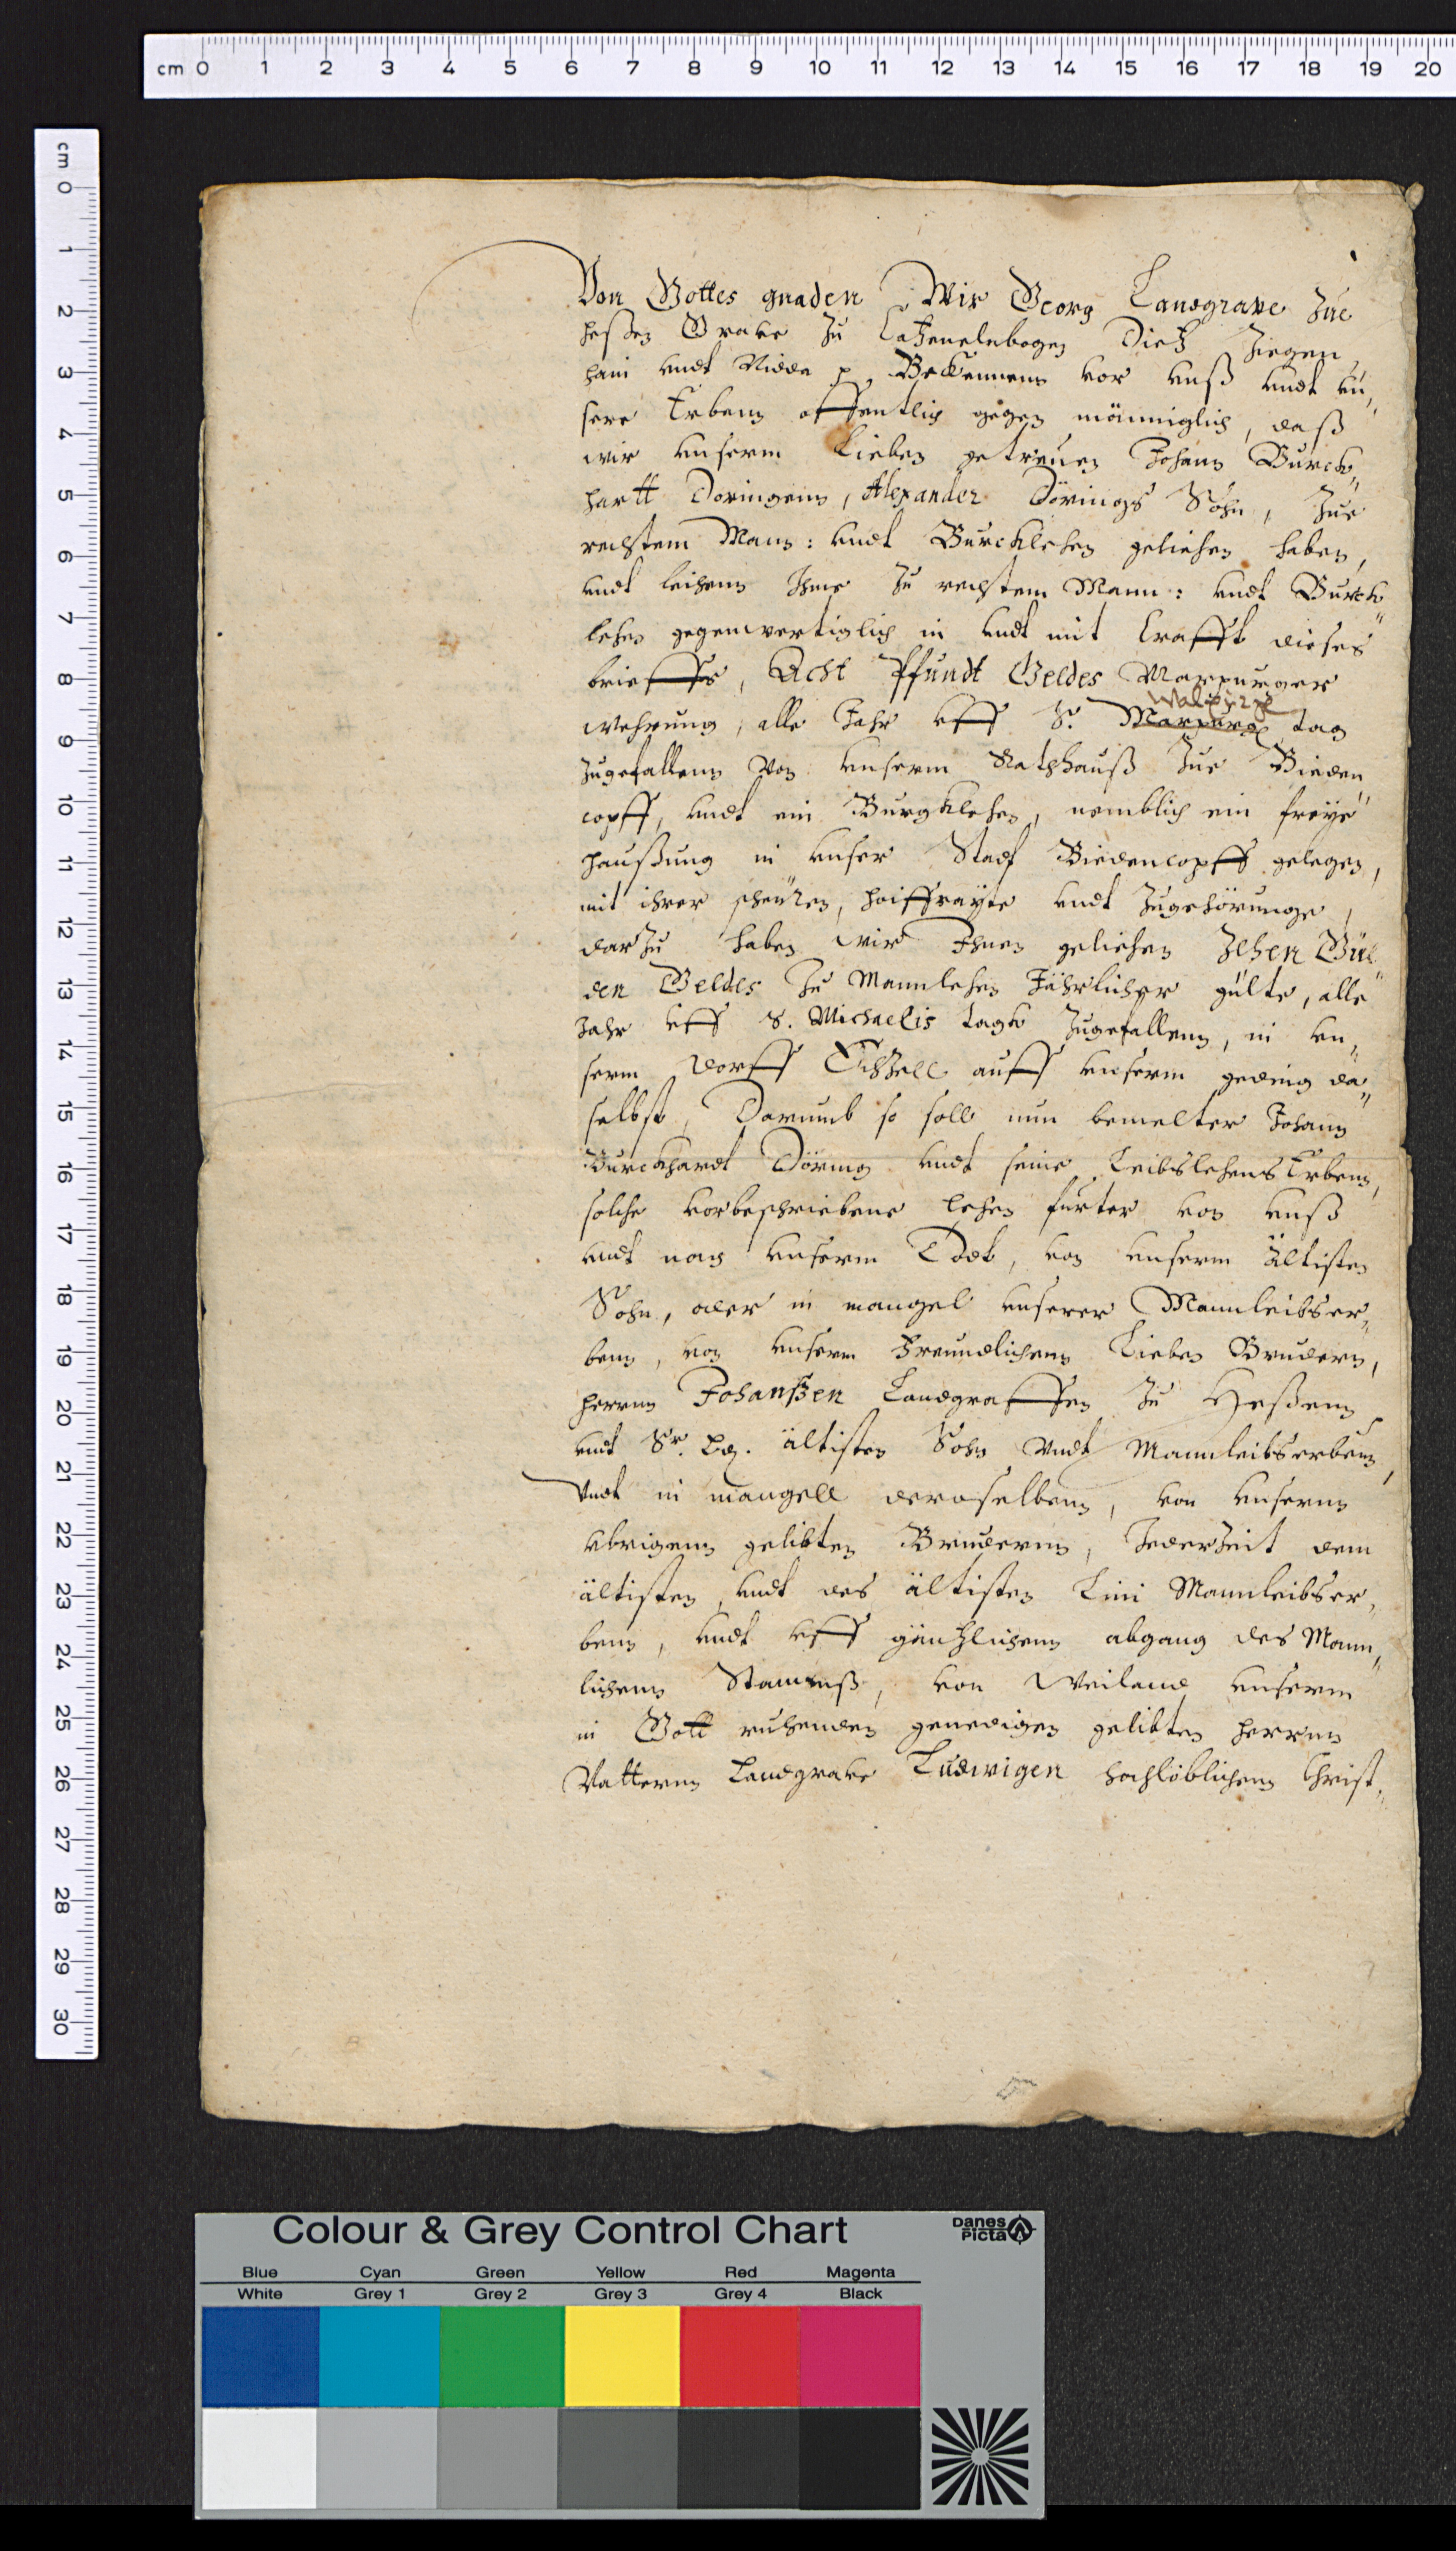 cm 0 1 2 3 4 5 6 7 8 9 10 11 12 13 14 15 16 17 18 19 20
cm 0 1 2 3 4 5 6 7 8 9 10 11 12 13 14 15 16 17 18 19 20 21 22 23 24 25 26 27 28 29 30
Von Gottes gnaden Wir Georg Landgrave Zue
Heßen Grave zu Catzenelnbogen Dietz Ziegen„
hain undt Nidda p. Bekennenn vor unß undt un„
sere Erbenn offentlich gegen männiglich, daß
wir unserm Lieben getreuen Johann Burck„
hartt Doringenn, Alexander Dörings Sohn, Zue
rechtem Mann: undt Burcklehen geliehen haben,
undt leihenn Ihme zu rechtem Mann: undt Burck„
lehen gegenwertiglich in undt mit Crafft dieses
brieffs, Acht Pfundt Geldes Marpurger
Walpurg
wehrung, alle Jahr uff S. Marpurg tag
zugefallenn von unserm Rathhauß Zue Bieden„
copff, undt ein Burgklehen, nemblich ein freye
Haußung in unser Stadt Biedencopff gelegen,
mit ihrer scheuren, Hoiffrayte undt Zugehörunge,
darzu haben wir Ihnen geliehen Zehen Gül„
den Geldes zu Mannlehen Jährlicher gülte, alle
Jahr uff S. Michaelis tagk zugefallenn, in un„
serm dorff Echzell auff unserm geding da„
selbst, Darumb so soll nun bemelter Johann
Burckhardt Döring undt seine LeibslehensErbenn,
solche vorbeschriebene lehen furter von unß
undt nach unserm Todt, von unserm ältisten
Sohn, oder in mangel unserer Mannleibser„
benn, von unserm Freundlichenn Lieben Brudern,
Herrnn Johanßen Landgraffen zu Heßenn
undt Sr. Ld. ältisten Sohn undt Mannleibserbenn,
Undt in mangell deroselbenn, von unsernn
ubrigenn gelibten Brudernn, Jederzeit dem
ältisten, undt des ältisten Lini Mannleibser„
benn, undt uff gäntzlichenn abgang des Mann„
lichenn Stammß, von Weiland unserm
in Gott ruhenden genedigen gelibten Herrnn
Vatternn Landgrave Ludwigen hochlöblichenn Christ„
Colour & Grey Control Chart
Danes Picta
Blue Cyan Green Yellow Red Magenta
White Grey 1 Grey 2 Grey 3 Grey 4 Black